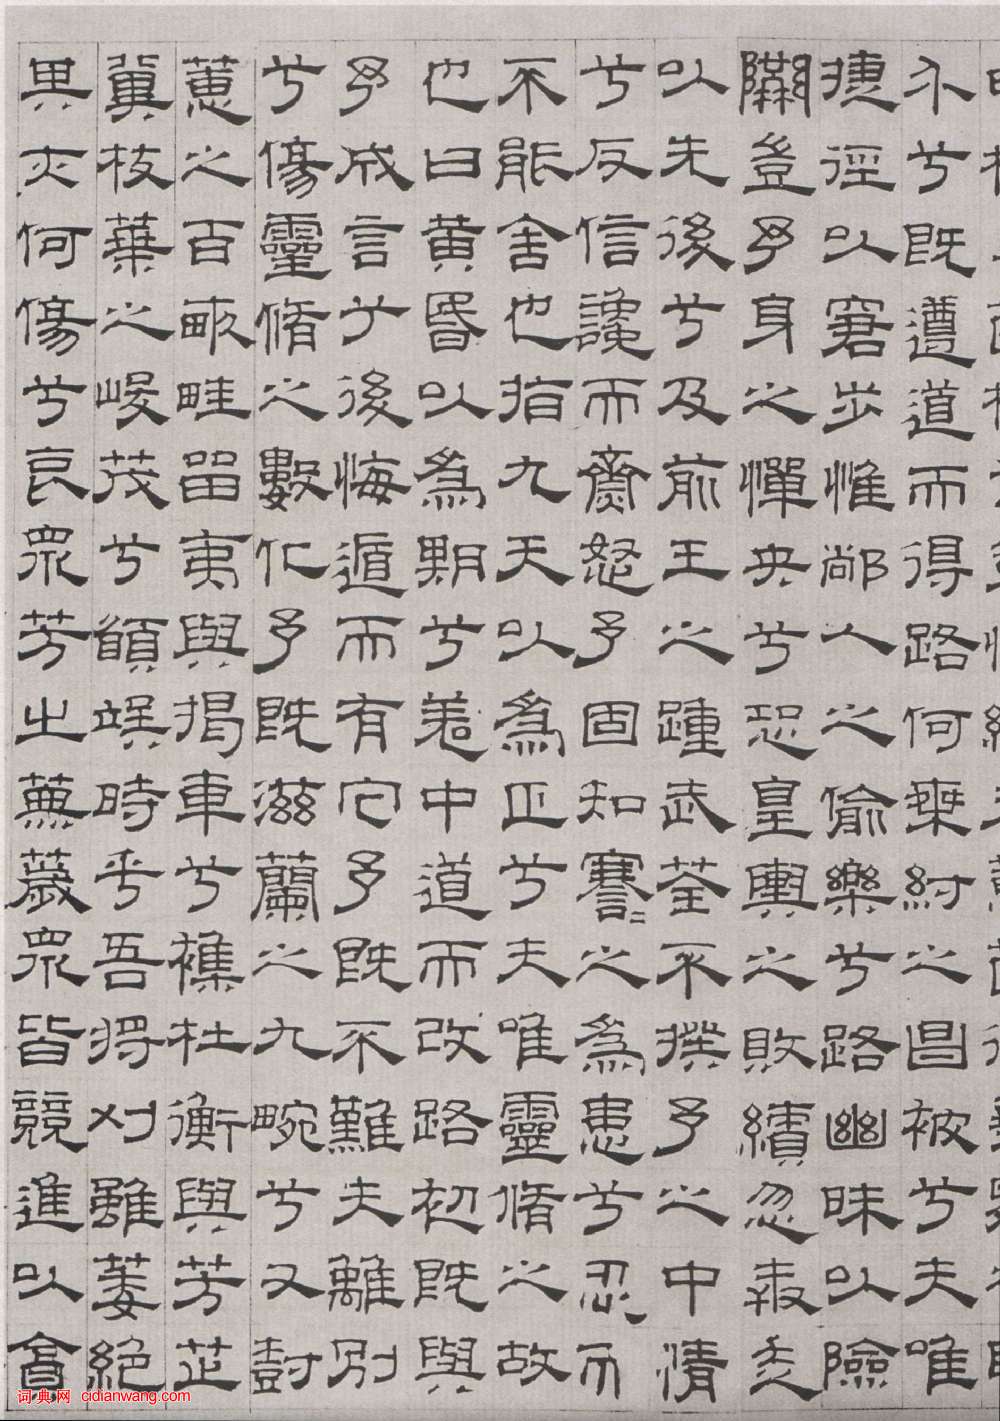 介兮既遵道而得路何桀紂之昌被兮夫唯
捷徑以窘步惟䣊人之偷樂兮路幽昧以險
隘豈予身之憚央兮恐皇輿之敗績忽奔走
以先後兮及前王之踵武荃不揆予之中情
兮反信讒而齌怒予固知謇〻之為患兮忍而
不能舍也指九天以為正兮夫唯靈脩之故
也曰黃昏以為期兮羌中道而改路初既與
予成言兮後悔遁而有它予既不難夫離別
兮傷靈脩之數化予既滋蘭之九畹兮又樹
蕙之百畝畦留夷與揭車兮雜杜衡與芳芷
冀枝葉之峻茂兮願竢時乎吾將刈雖萎絕
其亦何傷兮哀眾芳之蕪薉眾皆競進以貪
词典网 cidianwang.com